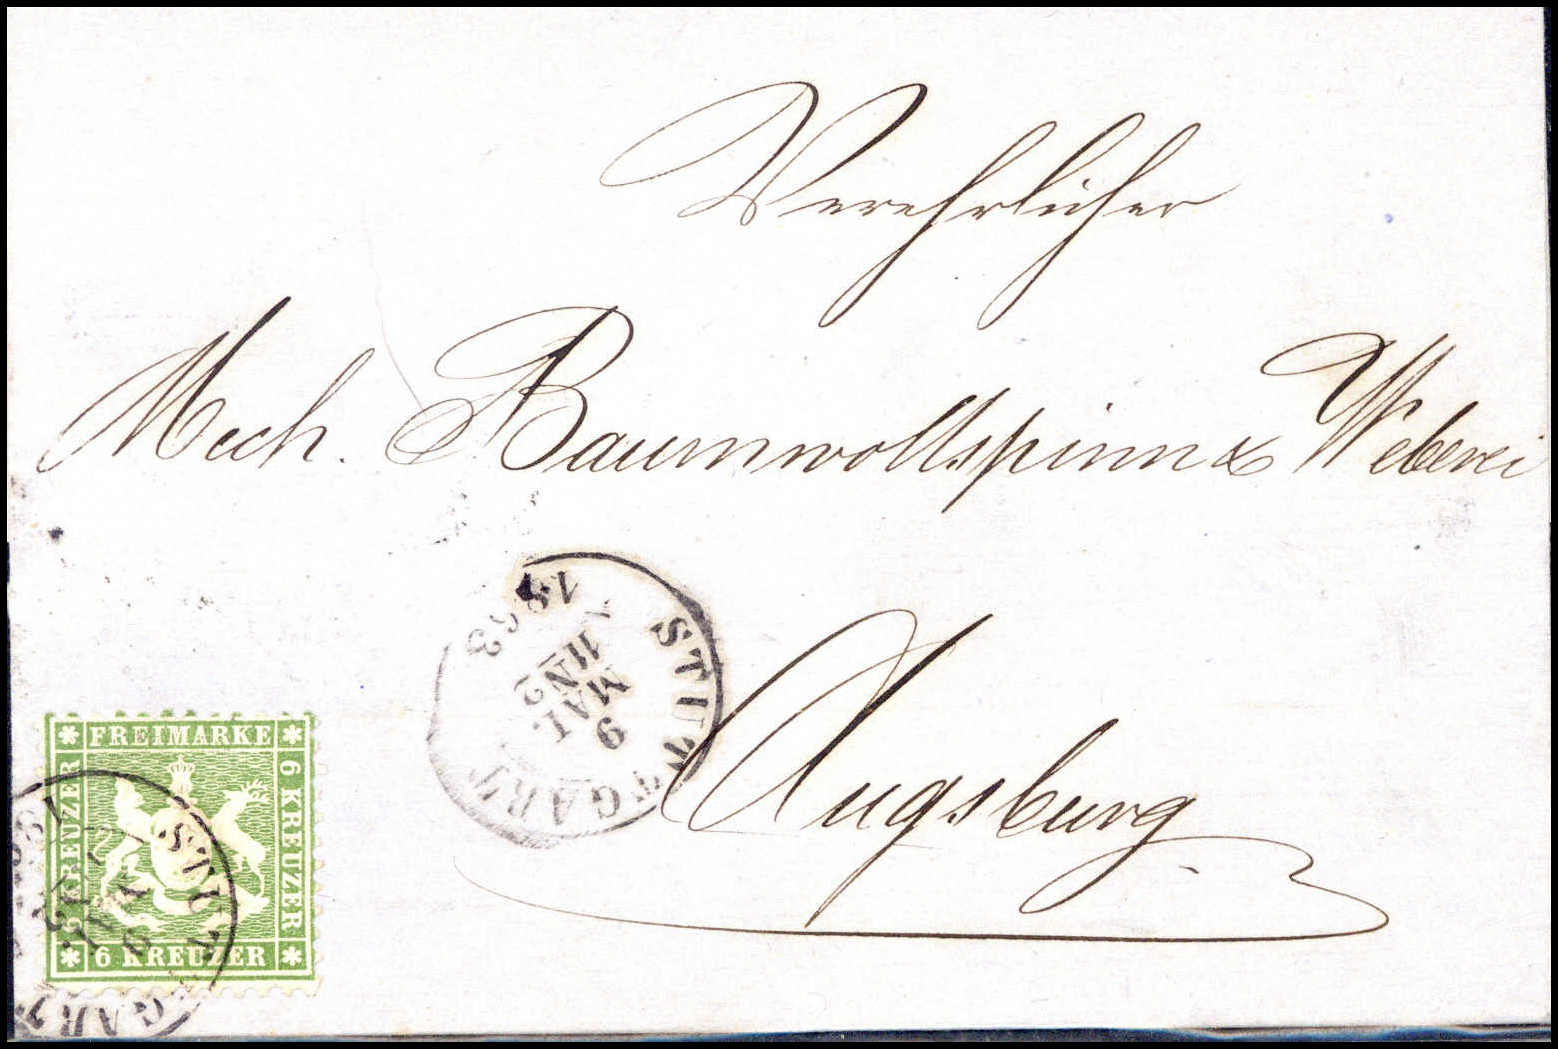 Verehrlicher
Mech. Baumwollspinn & Weberei
Augsburg.
STUTTGART
9
MAI.
11N2
18 63
FREIMARKE
6 KREUZER
6 KREUZER
6 KREUZER
STUTTGART
9
MAI